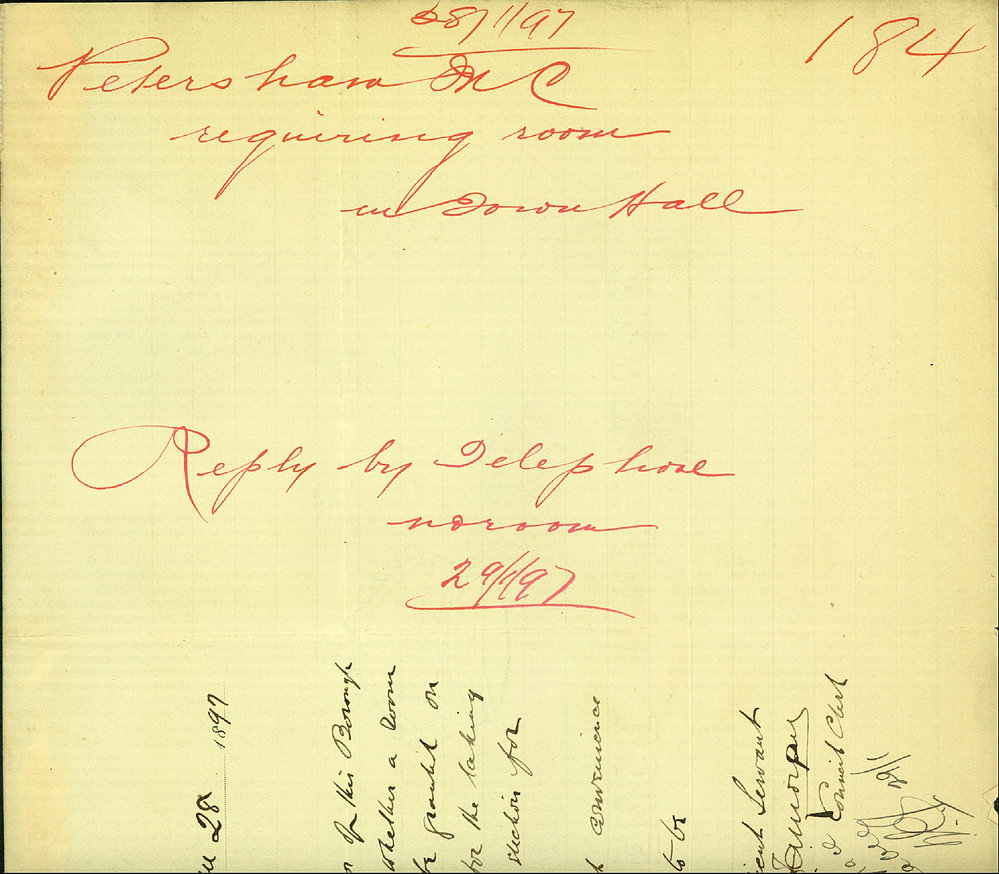 28/1/97
184
Petersham M C
requiring room
in Town Hall
Reply by Telephone
no room
29/1/97
28 1897
of this Borough
whether a Room
be granted on
for the taking
election for
convenience
to be
Servant
Council Clerk